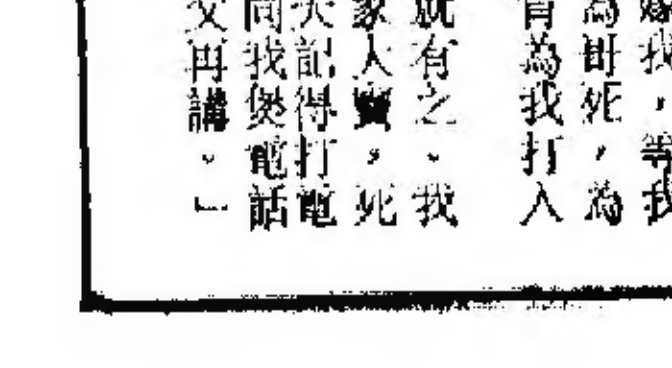 我，等我
為哥死，為
為我打入
就有之。我
家人賣，死
天記得打電
同我煲電話
又再講。」